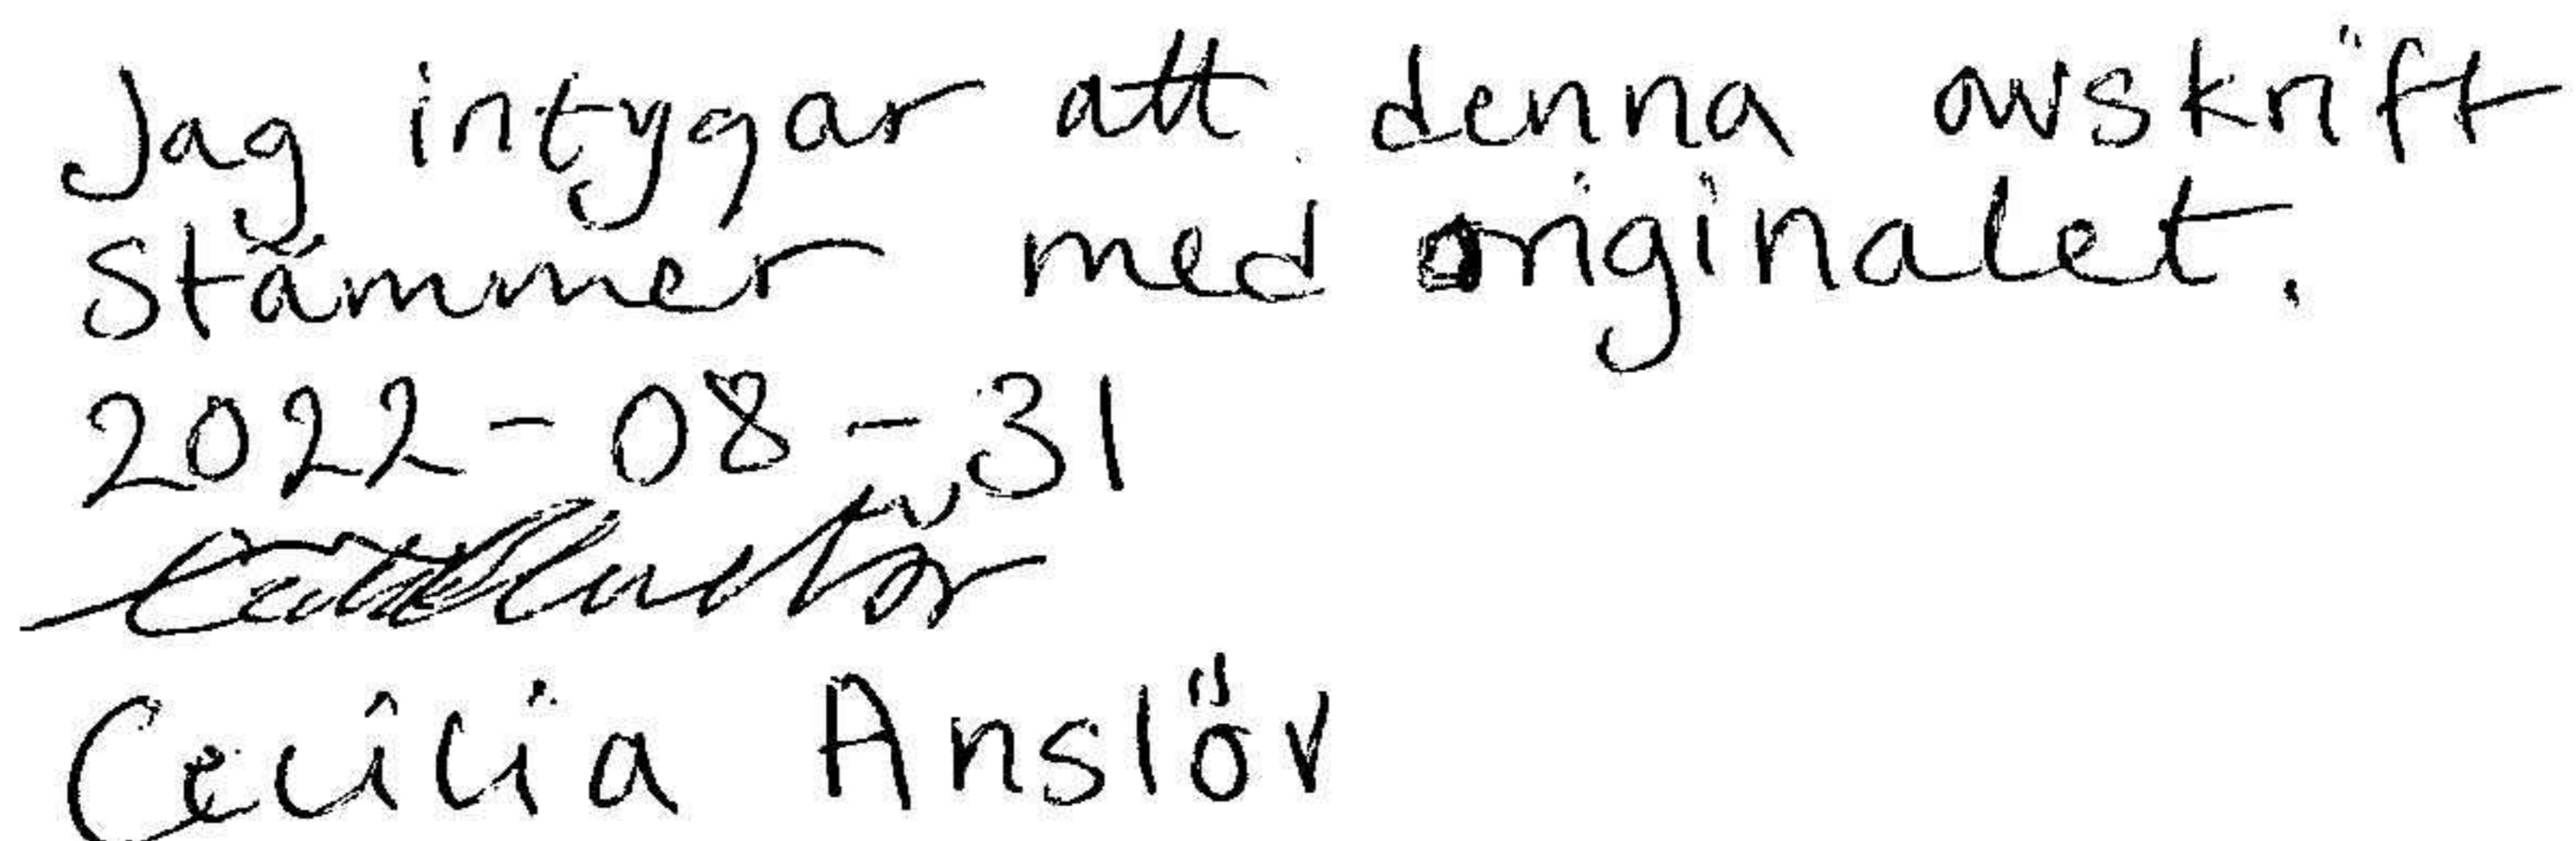 Jag intygar att denna avskrift
stämmer med originalet.
2022-08-31
Cecilia Anslöv